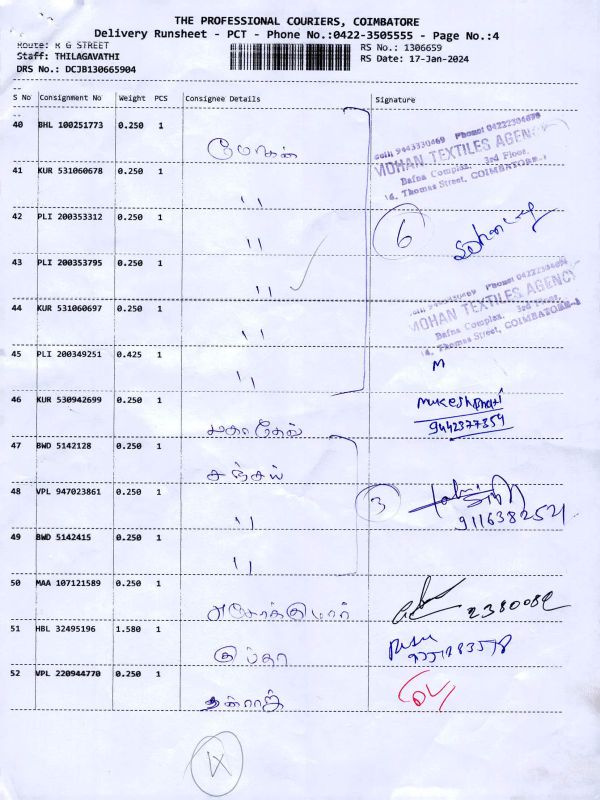 THE PROFESSIONAL COURIERS, COIMBATORE
Delivery Runsheet - PCT - Phone No.:0422-3505555 - Page No.:4
Route: R G STREET
RS No.: 1306659
Staff: THILAGAVATHI
RS Date: 17-Jan-2024
DRS No.: DCJB130665904
S No Consignment No Weight PCS Consignee Details Signature
40 BHL 100251773 0.250 1
மோகன்
MOHAN TEXTILES AGENCY
Bafna Complex, 3rd Floor,
14, Thomas Street, COIMBATORE-1
41 KUR 531060678 0.250 1
"
42 PLI 200353312 0.250 1
"
6
43 PLI 200353795 0.250 1
"
MOHAN TEXTILES AGENCY
Bafna Complex, 3rd Floor,
14, Thomas Street, COIMBATORE-1
44 KUR 531060697 0.250 1
"
45 PLI 200349251 0.425 1
"
M
46 KUR 530942699 0.250 1
Mukesh
9442377354
47 BWD 5142128 0.250 1
சஞ்சய்
48 VPL 947023861 0.250 1
"
3
9116382521
49 BWD 5142415 0.250 1
"
50 MAA 107121589 0.250 1
அசோக்குமார்
2380082
51 HBL 32495196 1.580 1
குப்தா
52 VPL 220944770 0.250 1
தன்ராஜ்